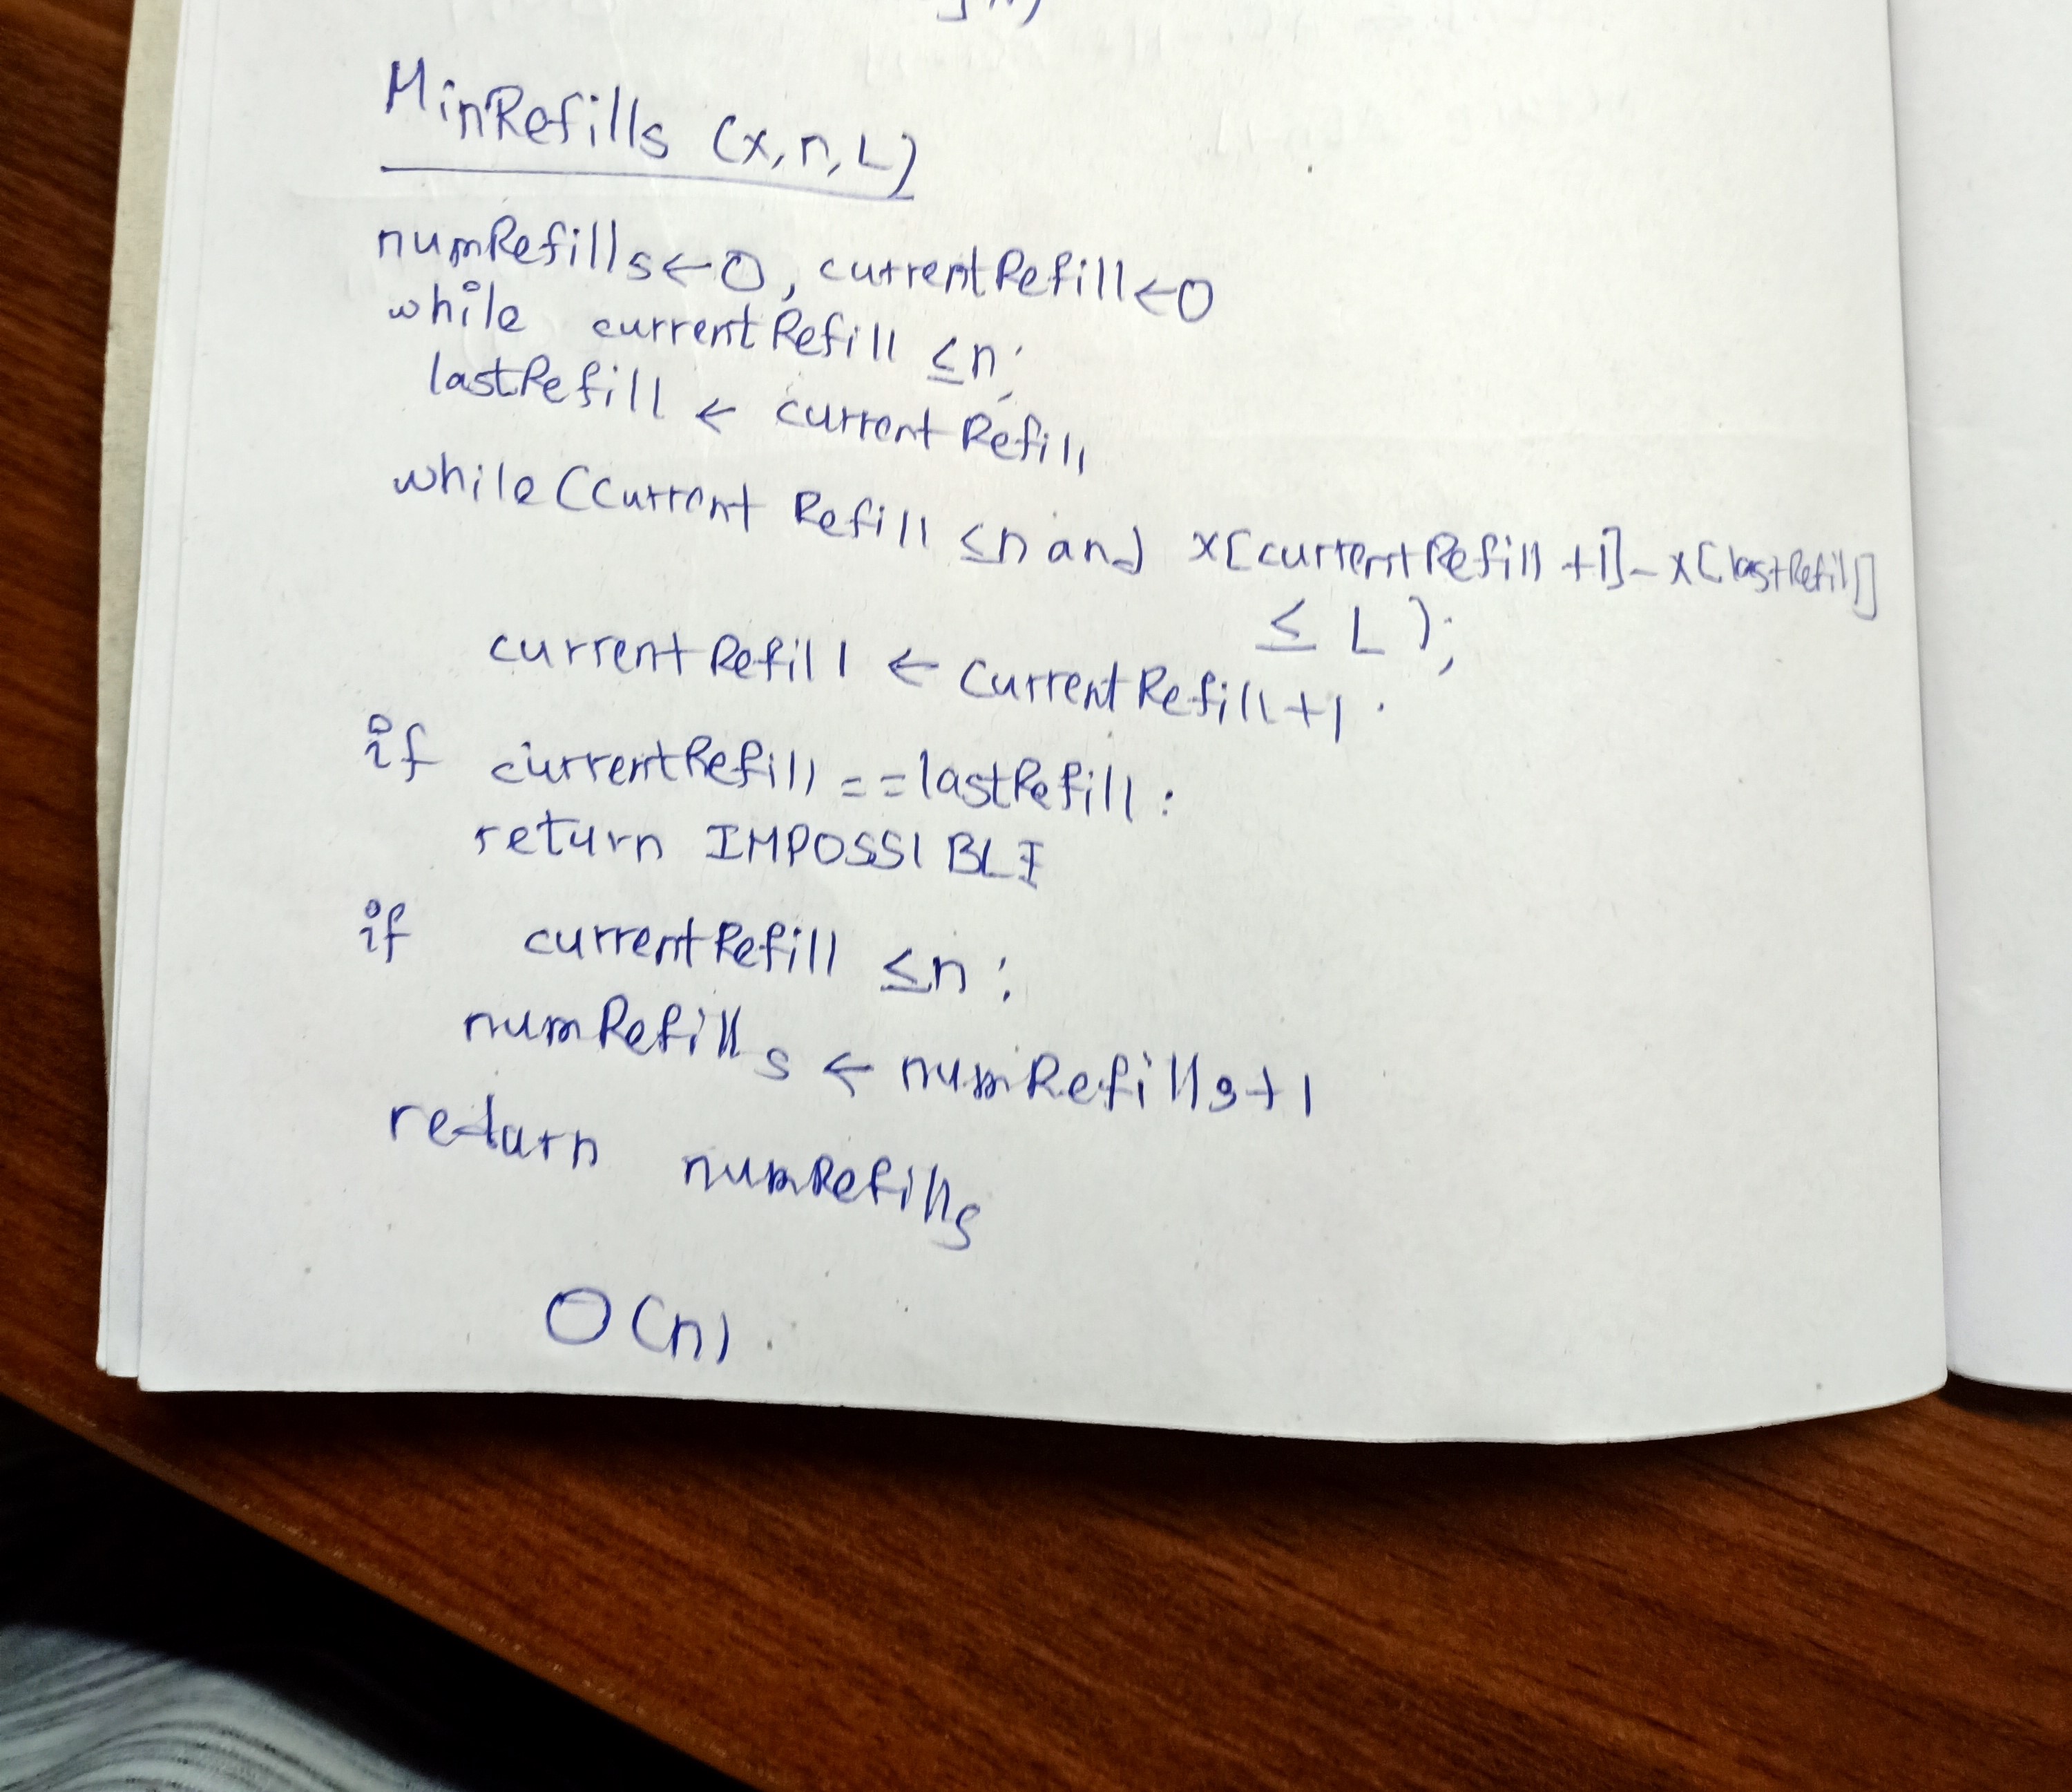 MinRefills (x,n,L)
numRefills ← 0, currentRefill ← 0
while currentRefill ≤ n:
lastRefill ← currentRefill
while (current Refill ≤ n and x[currentRefill +1] - x[lastRefill]
≤ L ):
currentRefill ← CurrentRefill+1.
if currentRefill == lastRefill:
return IMPOSSIBLE
if currentRefill ≤ n:
numRefills ← numRefills+1
return numRefills
O(n).